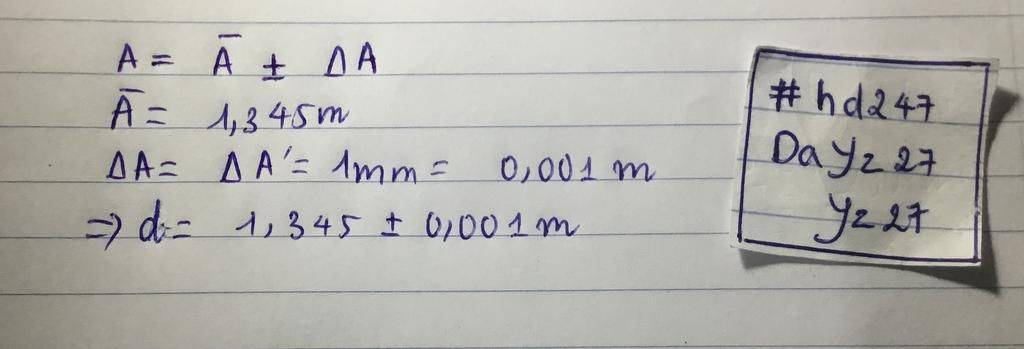 A = Ā ± ΔA
Ā = 1,345m
ΔA = ΔA' = 1mm = 0,001 m
=> d = 1,345 ± 0,001 m
#hd247
Dayz27
Yz27